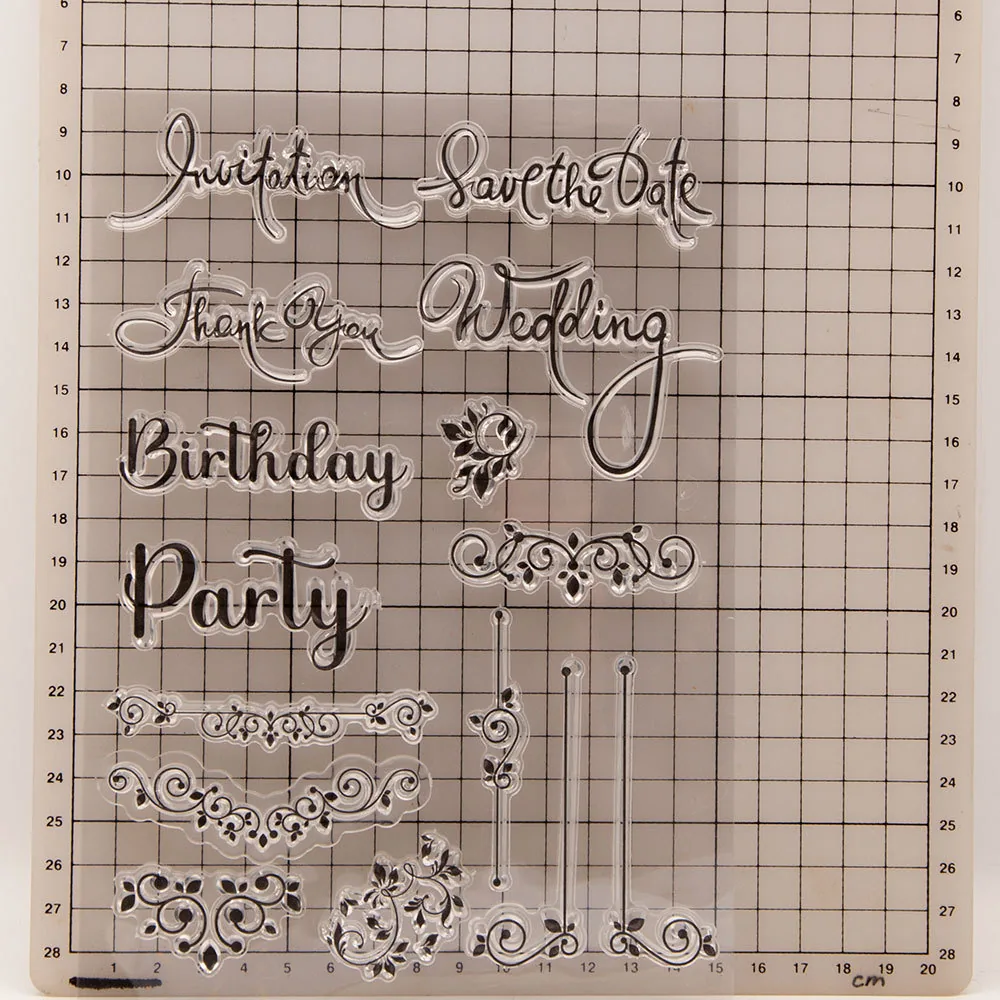 6 6
7 7
8 8
9 9
10 10
11 11
12 12
13 13
14 14
15 15
16 16
17 17
18 18
19 19
20 20
21 21
22 22
23 23
24 24
25 25
26 26
27 27
28 28
Invitation
Save the Date
Thank You
Wedding
Birthday
Party
1 2 4 5 7 8 9 10 11 12 13 14 15 16 17 18 19 20
cm